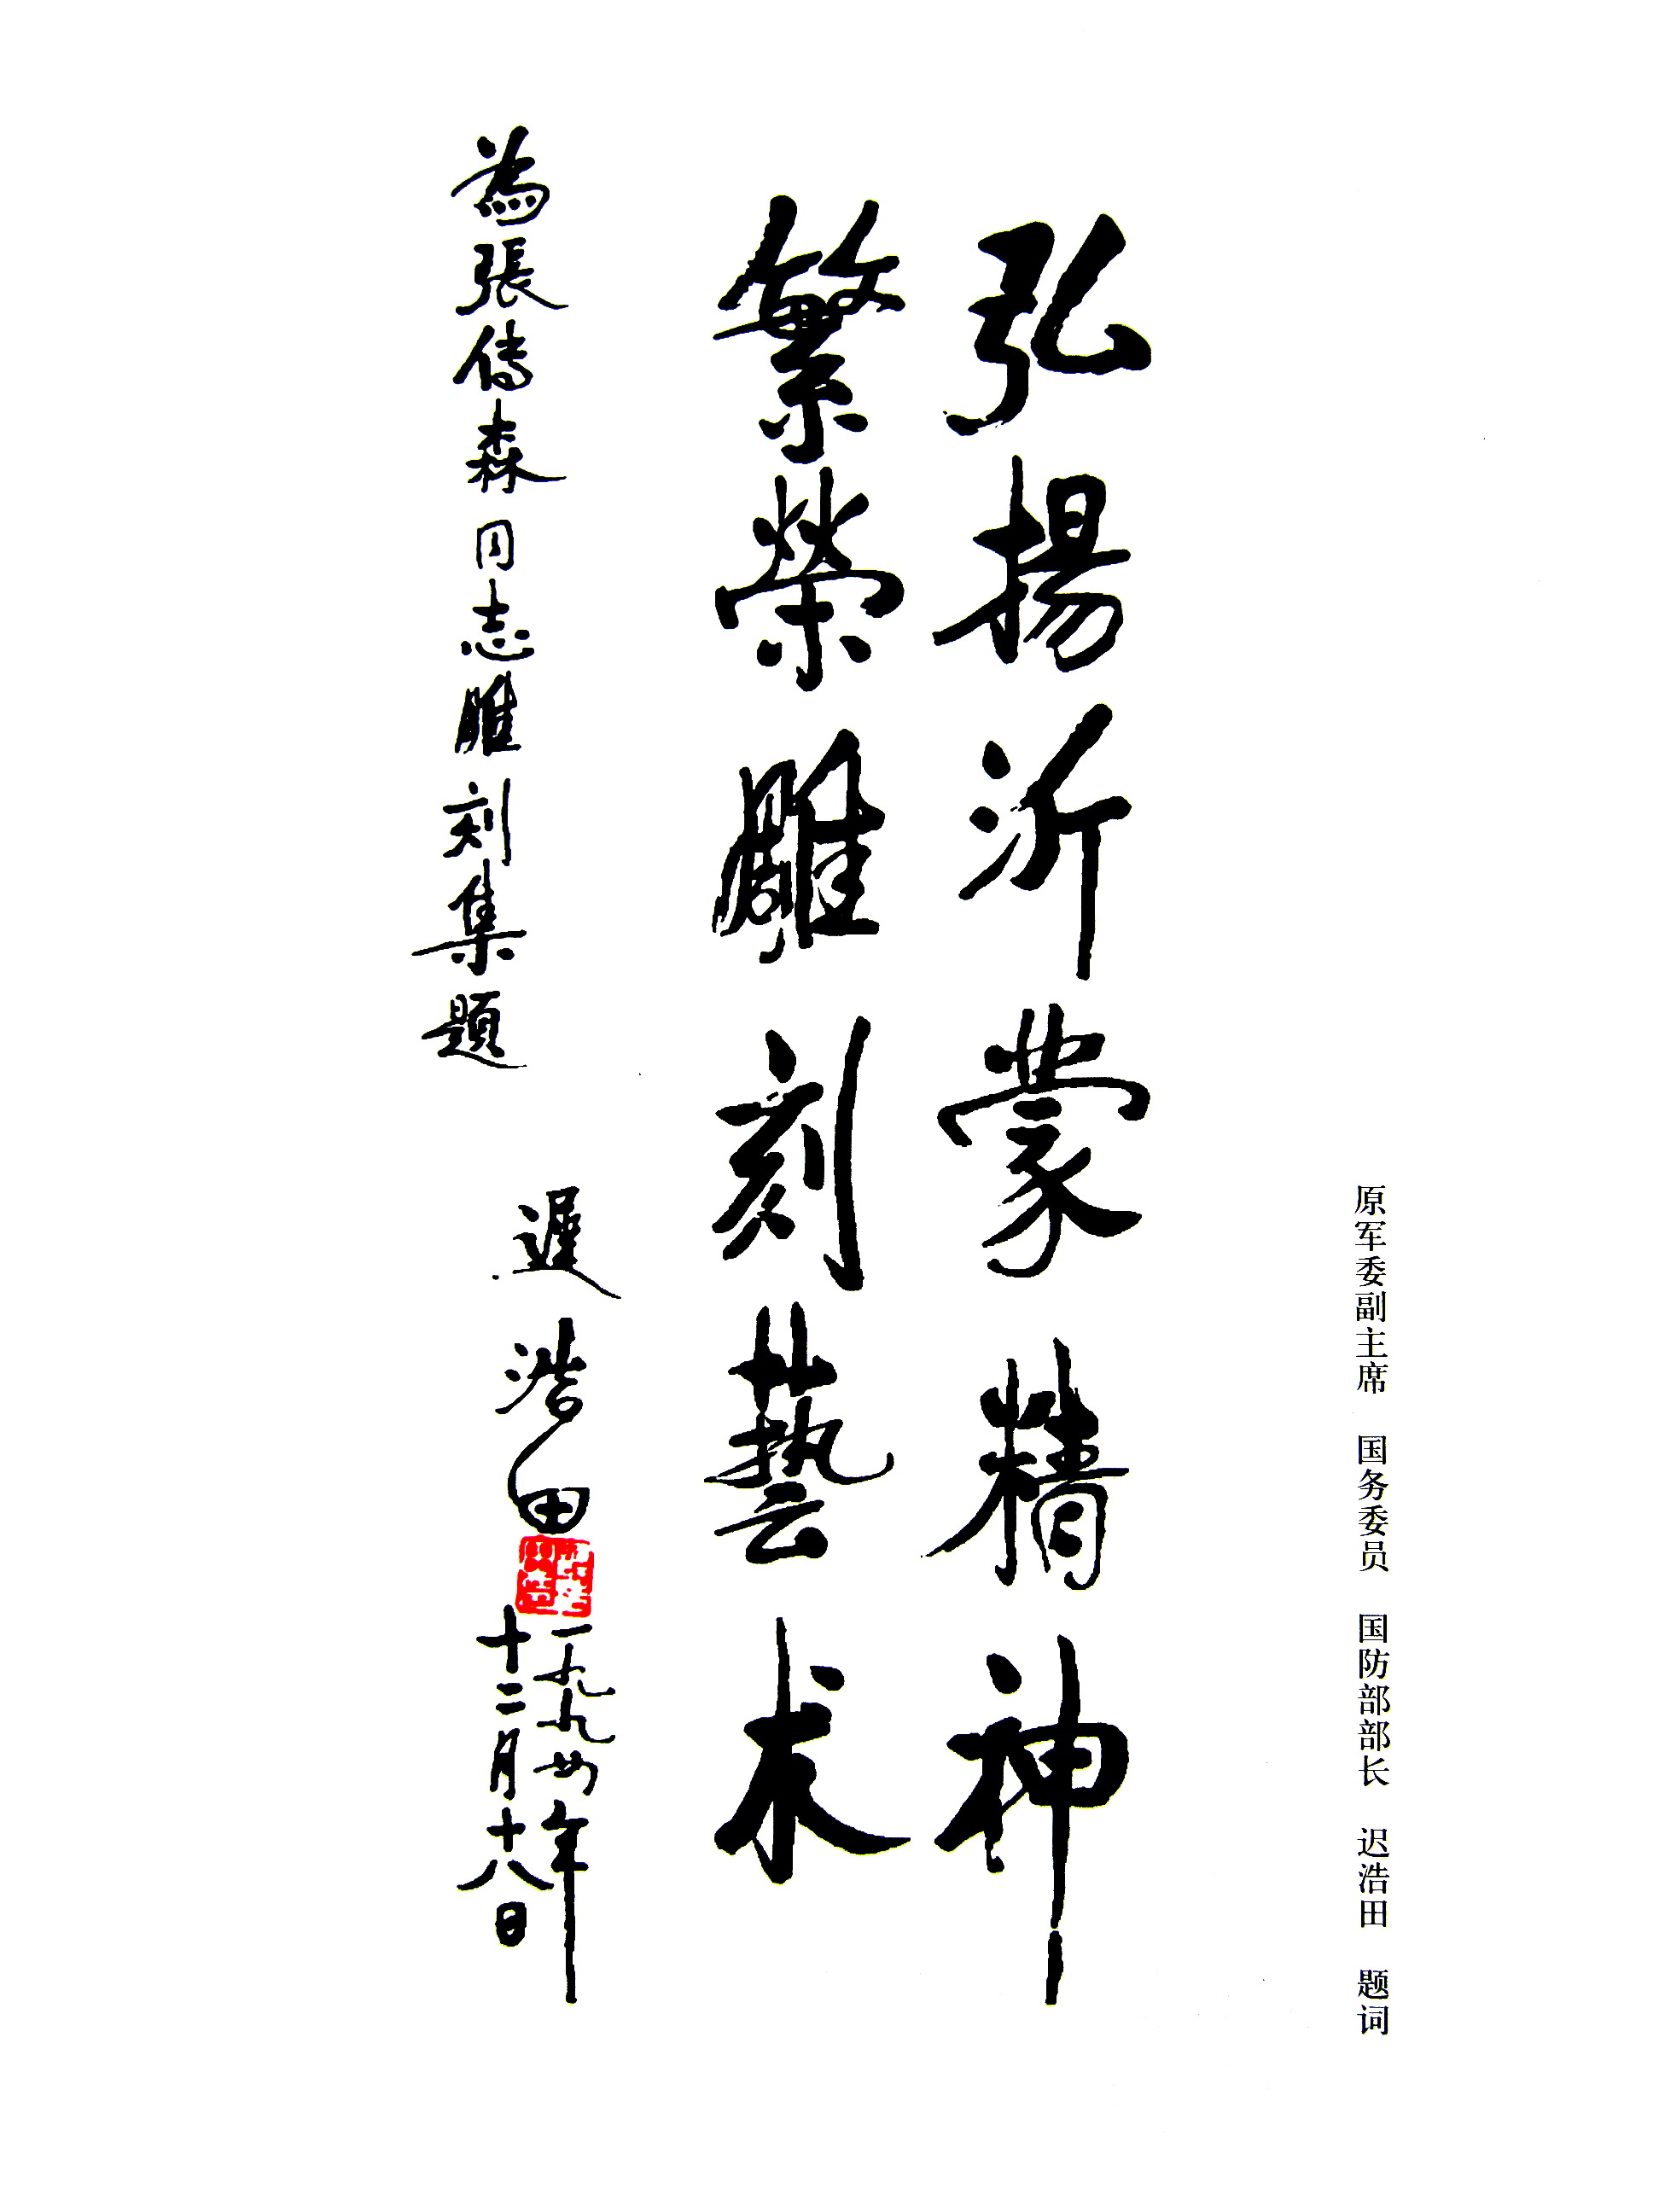 原军委副主席 国务委员 国防部部长 迟浩田 题词
弘揚沂蒙精神
繁榮雕刻藝术
為張傳森同志雕刻集題
遲浩田
一九九四年
十二月十八日